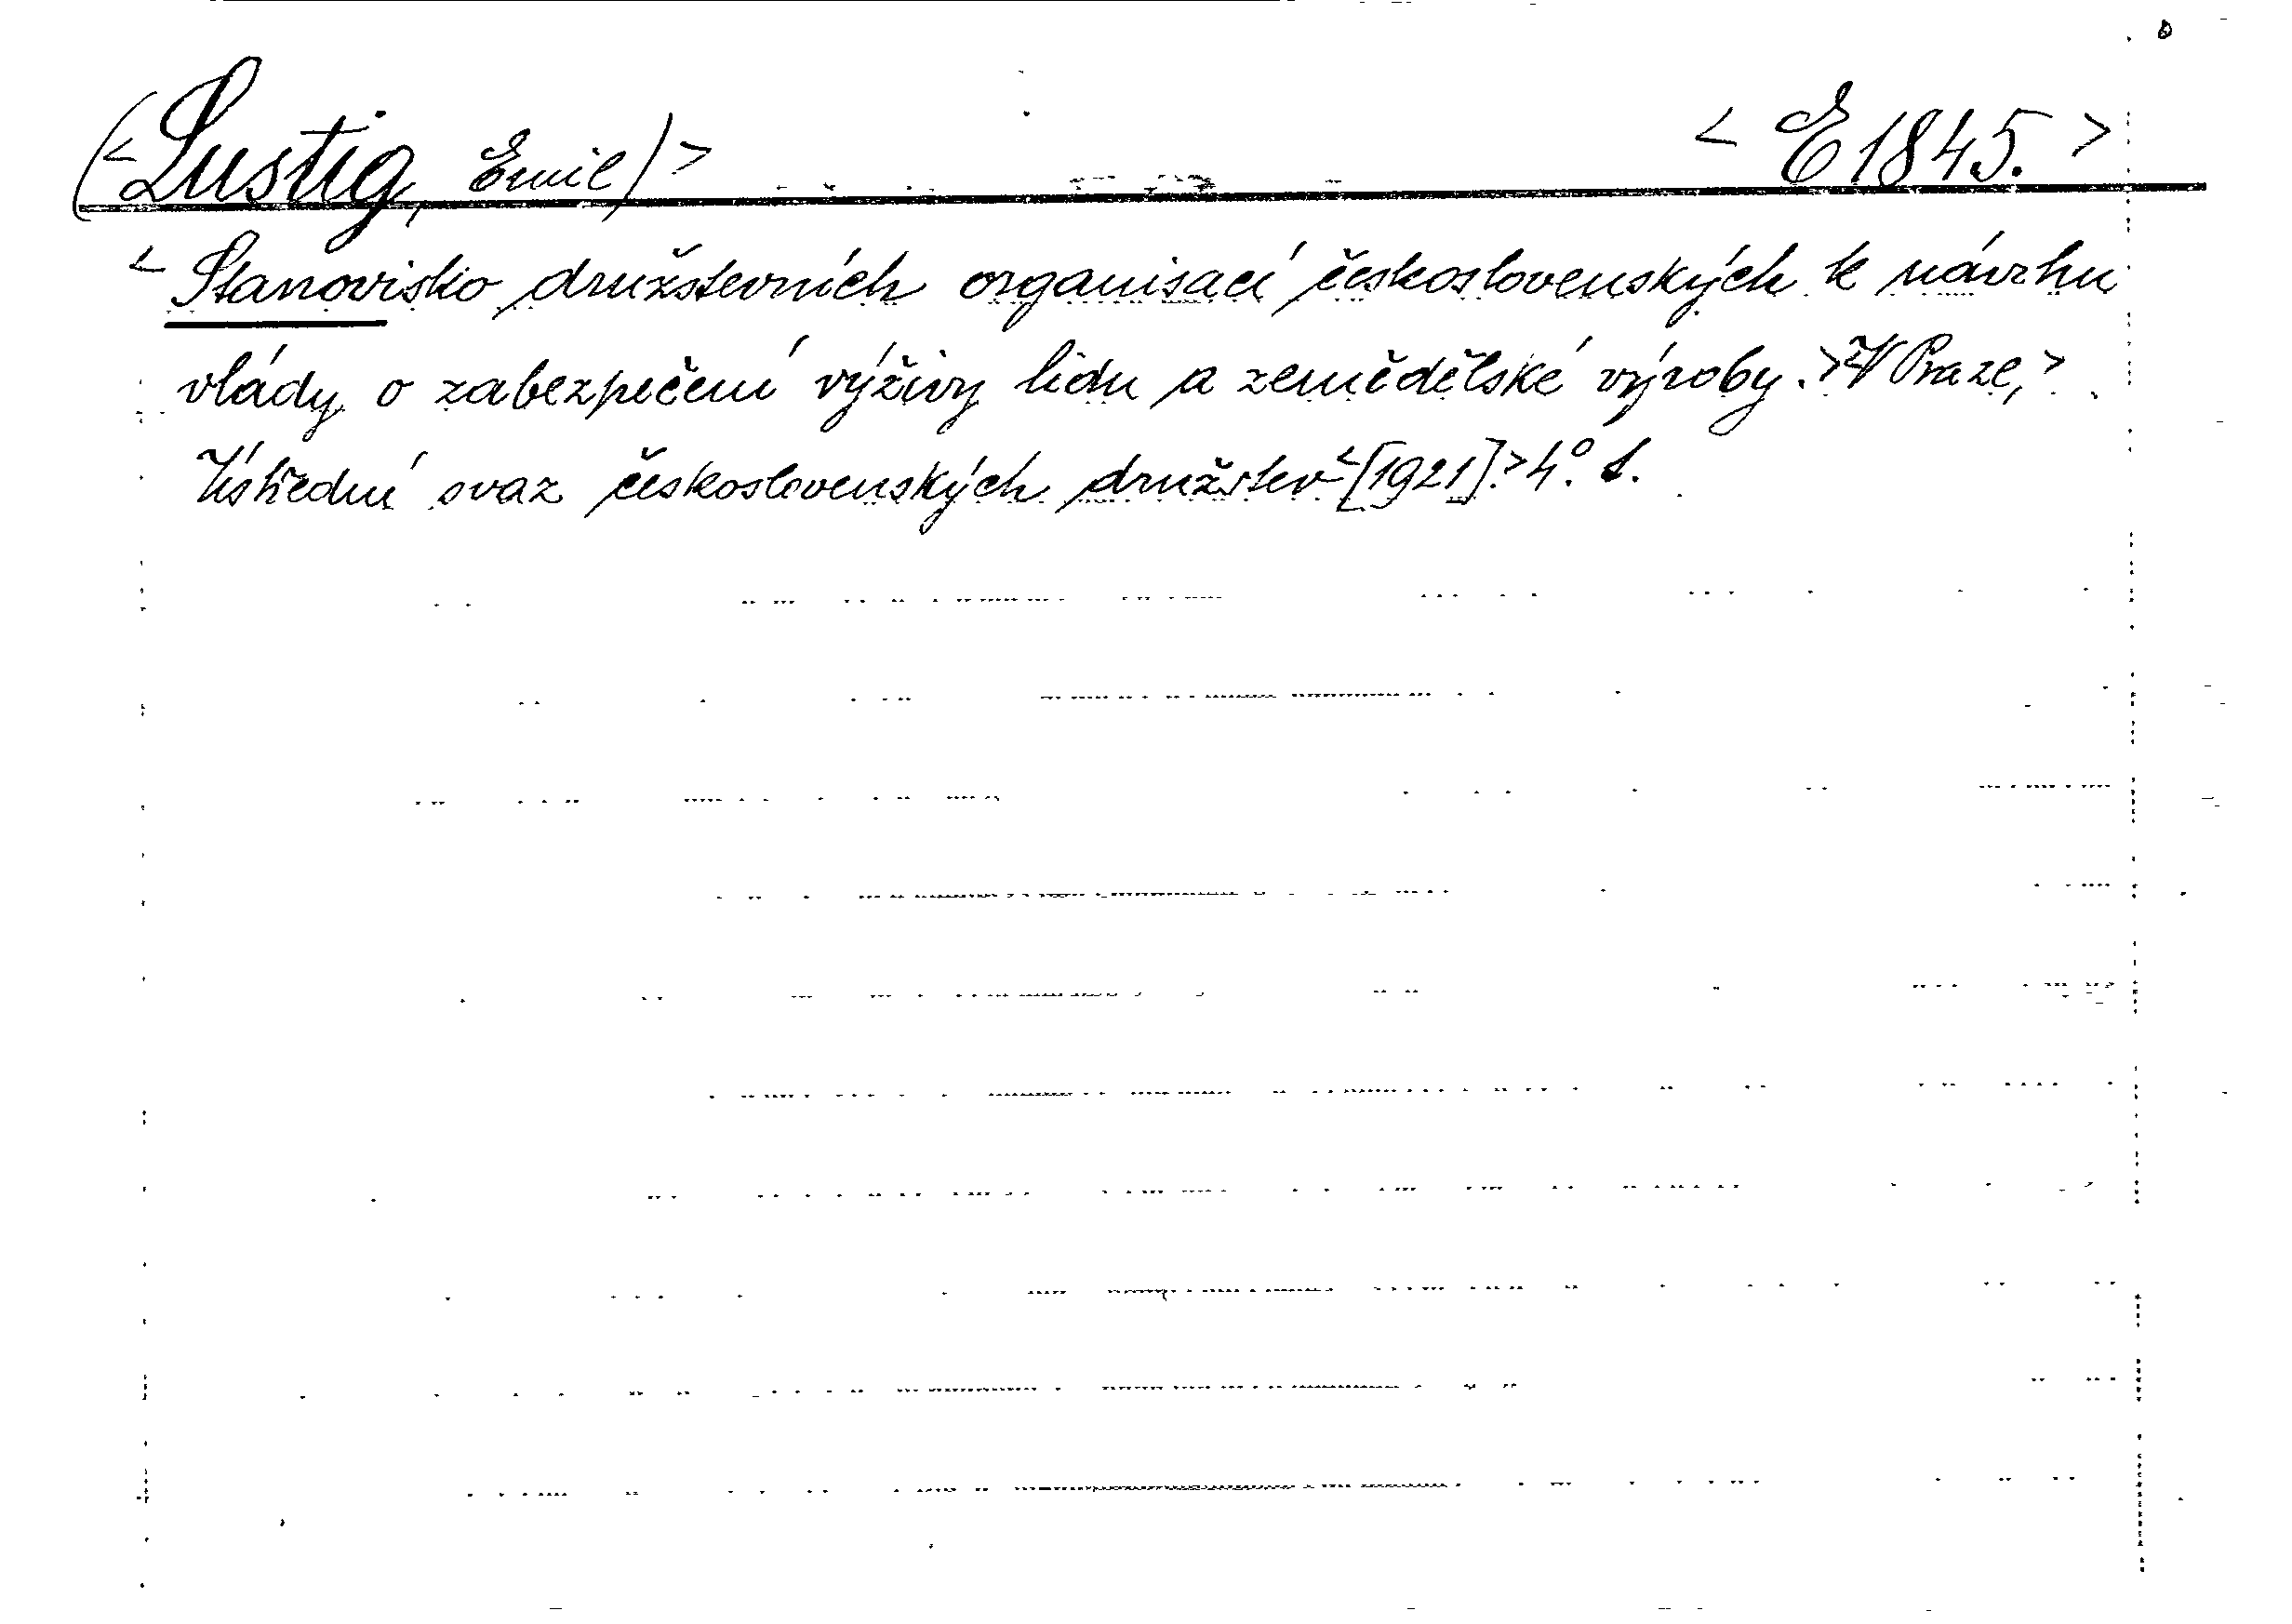 (<Lustig, Emil)> <E1845.>
<Stanovisko družstevních organisací československých k návrhu
vlády o zabezpečení výživy lidu a zemědělské výroby.> <V Praze,>
Ústřední svaz československých družstev <[1921].> 4°. 1.